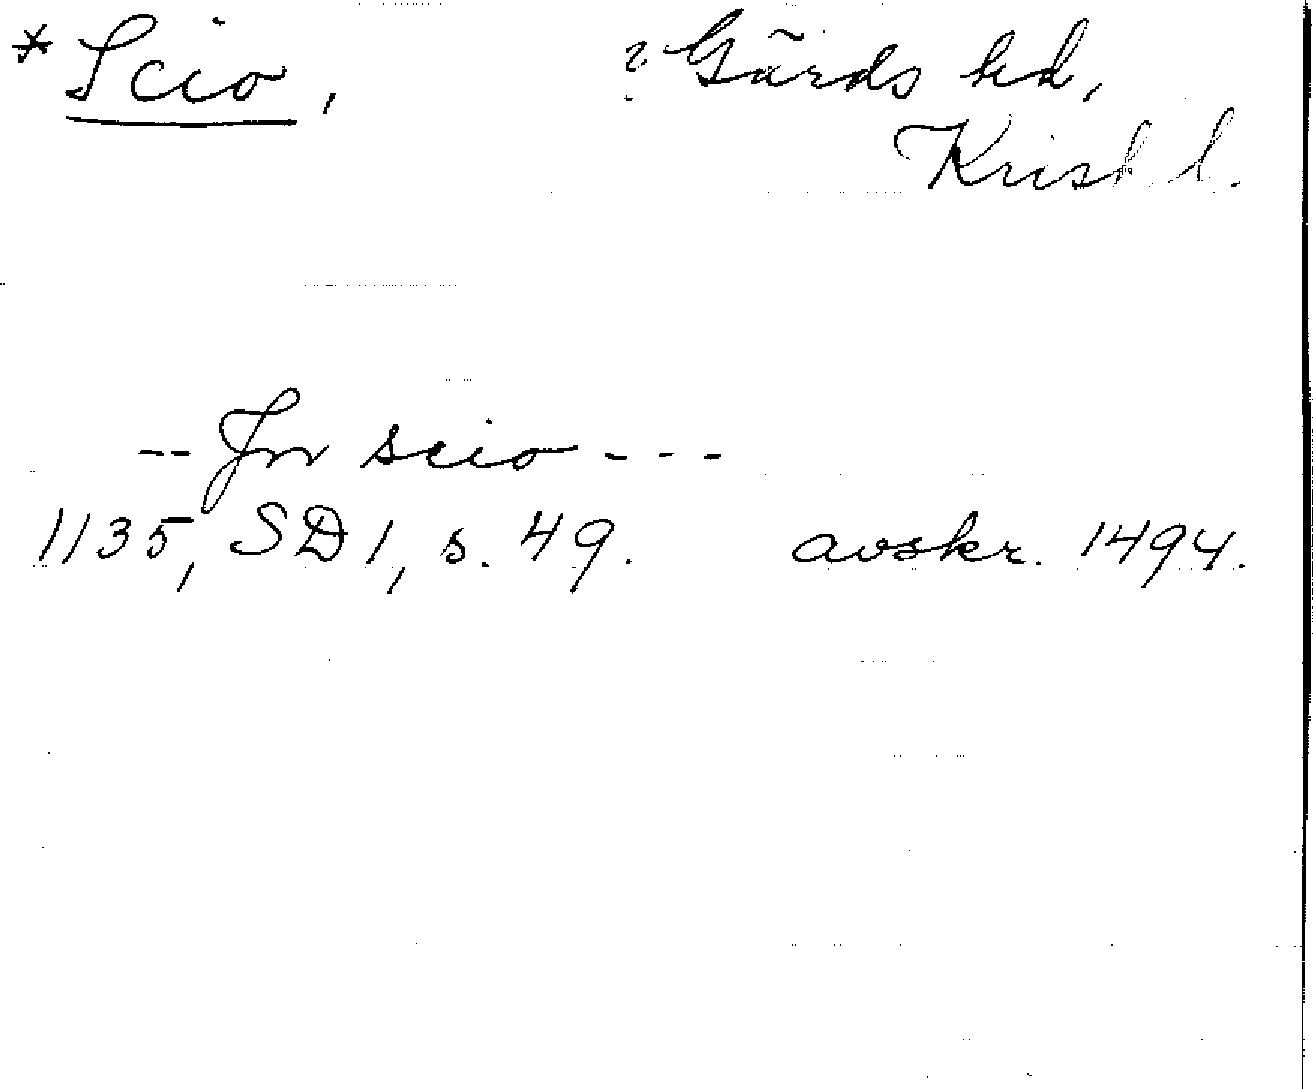 *Scio, ? Gärds hd,
Krist. l.
-- Jn scio ---
1135, SD 1, s. 49. avskr. 1494.